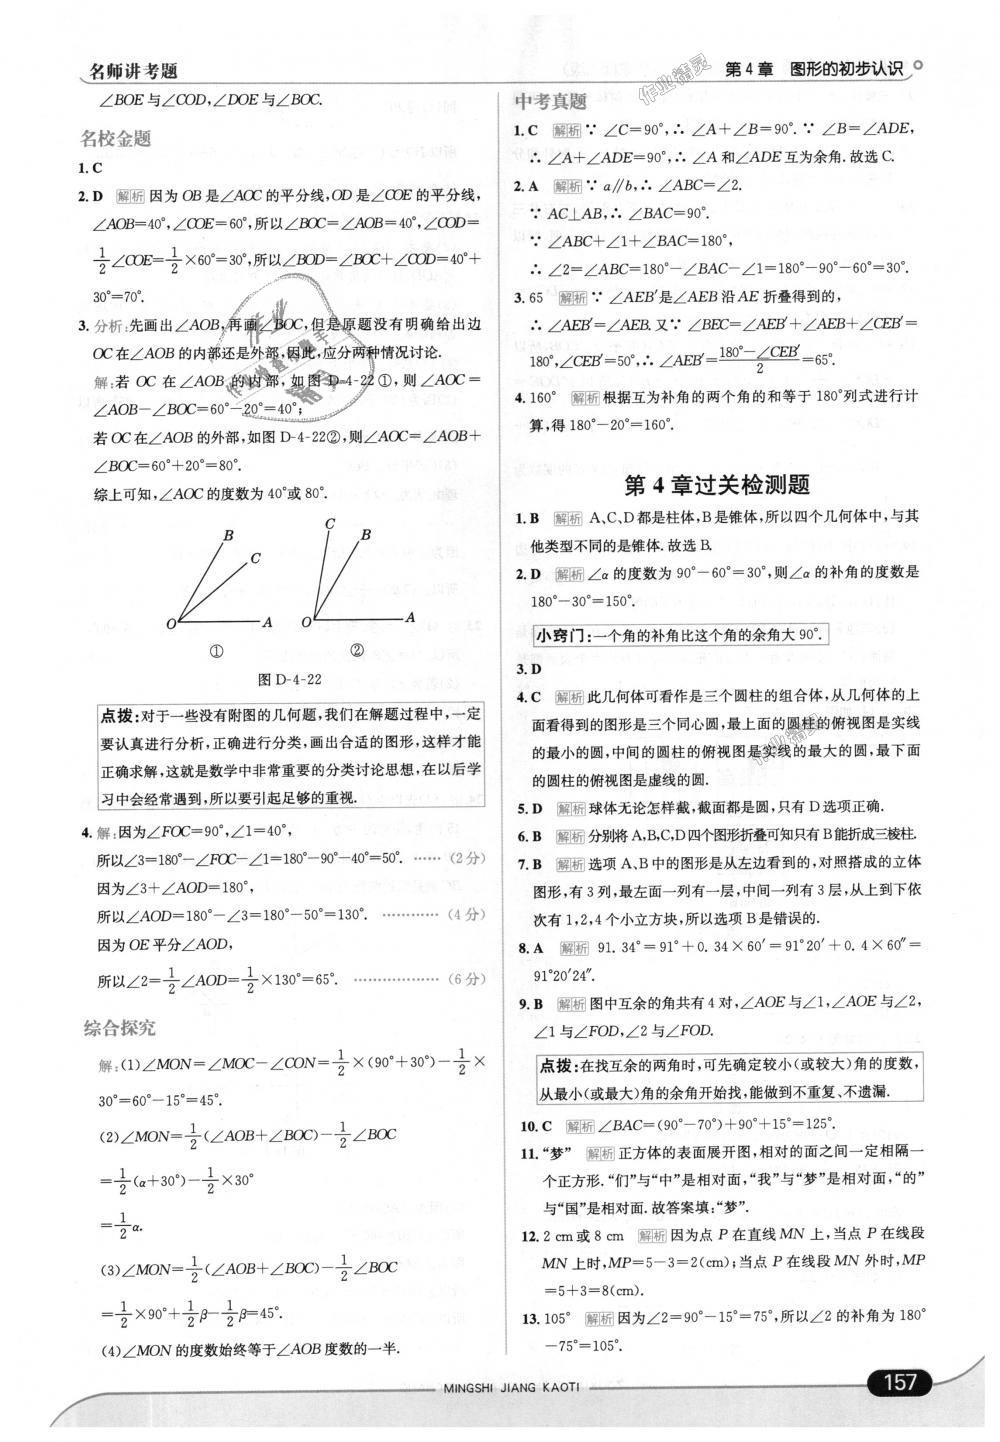 名师讲考题
第4章 图形的初步认识
∠BOE与∠COD,∠DOE与∠BOC.
名校金题
1. C
2. D 解析 因为OB是∠AOC的平分线,OD是∠COE的平分线,
∠AOB=40°,∠COE=60°,所以∠BOC=∠AOB=40°,∠COD=
1/2∠COE=1/2×60°=30°,所以∠BOD=∠BOC+∠COD=40°+
30°=70°.
3. 分析:先画出∠AOB,再画∠BOC,但是原题没有明确给出边
OC在∠AOB的内部还是外部,因此,应分两种情况讨论.
解:若OC在∠AOB的内部,如图D-4-22①,则∠AOC=
∠AOB-∠BOC=60°-20°=40°;
若OC在∠AOB的外部,如图D-4-22②,则∠AOC=∠AOB+
∠BOC=60°+20°=80°.
综上可知,∠AOC的度数为40°或80°.
B
C
O
A
①
C
B
O
A
②
图D-4-22
点拨:对于一些没有附图的几何题,我们在解题过程中,一定
要认真进行分析,正确进行分类,画出合适的图形,这样才能
正确求解,这就是数学中非常重要的分类讨论思想,在以后学
习中会经常遇到,所以要引起足够的重视.
4. 解:因为∠FOC=90°,∠1=40°,
所以∠3=180°-∠FOC-∠1=180°-90°-40°=50°. ……(2分)
因为∠3+∠AOD=180°,
所以∠AOD=180°-∠3=180°-50°=130°. …………(4分)
因为OE平分∠AOD,
所以∠2=1/2∠AOD=1/2×130°=65°. ………………(6分)
综合探究
解:(1)∠MON=∠MOC-∠CON=1/2×(90°+30°)-1/2×
30°=60°-15°=45°.
(2)∠MON=1/2(∠AOB+∠BOC)-1/2∠BOC
=1/2(α+30°)-1/2×30°
=1/2α.
(3)∠MON=1/2(∠AOB+∠BOC)-1/2∠BOC
=1/2×90°+1/2β-1/2β=45°.
(4)∠MON的度数始终等于∠AOB度数的一半.
中考真题
1. C 解析 ∵∠C=90°,∴∠A+∠B=90°.∵∠B=∠ADE,
∴∠A+∠ADE=90°,∴∠A和∠ADE互为余角.故选C.
2. A 解析 ∵a∥b,∴∠ABC=∠2.
∵AC⊥AB,∴∠BAC=90°.
∵∠ABC+∠1+∠BAC=180°,
∴∠2=∠ABC=180°-∠BAC-∠1=180°-90°-60°=30°.
3. 65 解析 ∵∠AEB′是∠AEB沿AE折叠得到的,
∴∠AEB′=∠AEB.又∵∠BEC=∠AEB′+∠AEB+∠CEB′=
180°,∠CEB′=50°,∴∠AEB′=(180°-∠CEB′)/2=65°.
4. 160° 解析 根据互为补角的两个角的和等于180°列式进行计
算,得180°-20°=160°.
第4章过关检测题
1. B 解析 A、C、D都是柱体,B是锥体,所以四个几何体中,与其
他类型不同的是锥体.故选B.
2. D 解析 ∠α的度数为90°-60°=30°,则∠α的补角的度数是
180°-30°=150°.
小窍门:一个角的补角比这个角的余角大90°.
3. D
4. C 解析 此几何体可看作是三个圆柱的组合体,从几何体的上
面看得到的图形是三个同心圆,最上面的圆柱的俯视图是实线
的最小的圆,中间的圆柱的俯视图是实线的最大的圆,最下面
的圆柱的俯视图是虚线的圆.
5. D 解析 球体无论怎样截,截面都是圆,只有D选项正确.
6. B 解析 分别将A、B、C、D四个图形折叠可知只有B能折成三棱柱.
7. B 解析 选项A、B中的图形是从左边看到的,对照搭成的立体
图形,有3列,最左面一列有一层,中间一列有3层,从上到下依
次有1,2,4个小立方块,所以选项B是错误的.
8. A 解析 91.34°=91°+0.34×60′=91°20′+0.4×60″=
91°20′24″.
9. B 解析 图中互余的角共有4对,∠AOE与∠1,∠AOE与∠2,
∠1与∠FOD,∠2与∠FOD.
点拨:在找互余的两角时,可先确定较小(或较大)角的度数,
从最小(或最大)角的余角开始找,能做到不重复、不遗漏.
10. C 解析 ∠BAC=(90°-70°)+90°+15°=125°.
11. “梦” 解析 正方体的表面展开图,相对的面之间一定相隔一
个正方形.“们”与“中”是相对面,“我”与“梦”是相对面,“的”
与“国”是相对面.故答案填:“梦”.
12. 2 cm或8 cm 解析 因为点P在直线MN上,当点P在线段
MN上时,MP=5-3=2(cm);当点P在线段MN外时,MP
=5+3=8(cm).
13. 105° 解析 因为∠2=90°-15°=75°,所以∠2的补角为180°
-75°=105°.
MINGSHI JIANG KAOTI
157